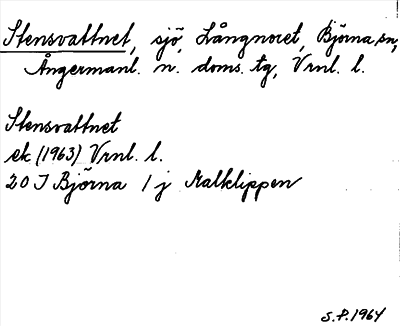 Stensvattnet, sjö, Långnoret, Björna sn,
Ångermanl. n. doms. tg, Vrnl. l.
Stensvattnet
ek (1963) Vrnl. l.
20 J Björna 1 j Malklippen
S.P. 1964